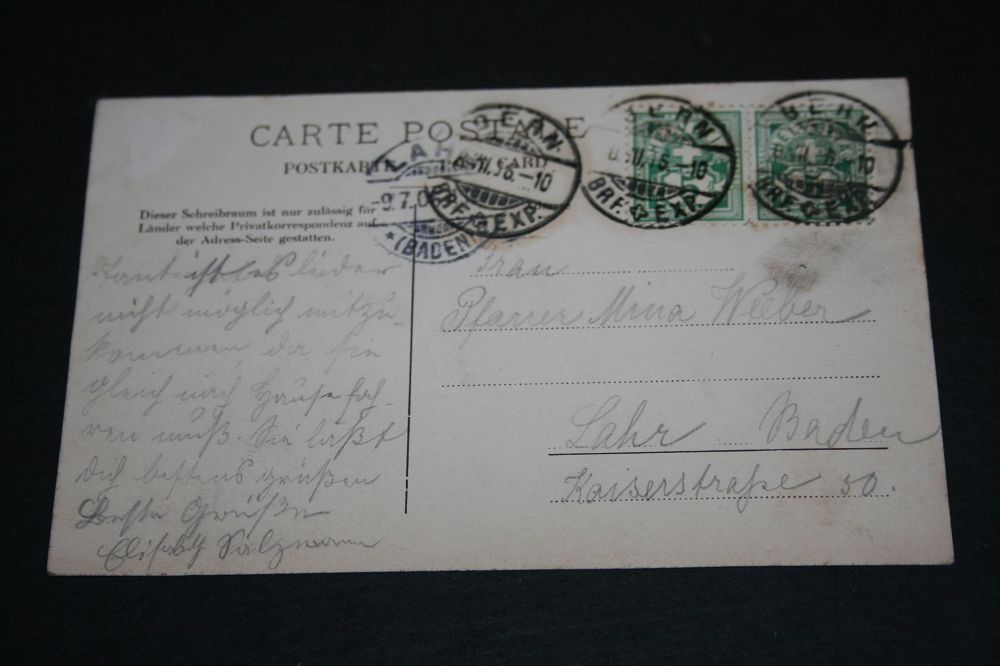 CARTE POSTALE
POSTKARTE POST CARD
Dieser Schreibraum ist nur zulässig für
Länder welche Privatkorrespondenz auf
der Adress-Seite gestatten.
BERN
BRF. EXP.
BERN
BRF. EXP.
BERN
BRF. EXP.
LAHR
-9.7.0
*(BADEN)
Tante ist es leider
nicht möglich mitzu-
kommen, da sie
gleich nach Hause fah-
ren muß. Sie läßt
dich bestens grüßen
Beste Grüße
Elisabeth Salzmann
Frau
Pfarrer Mina Weeber
Lahr Baden
Kaiserstraße 50.